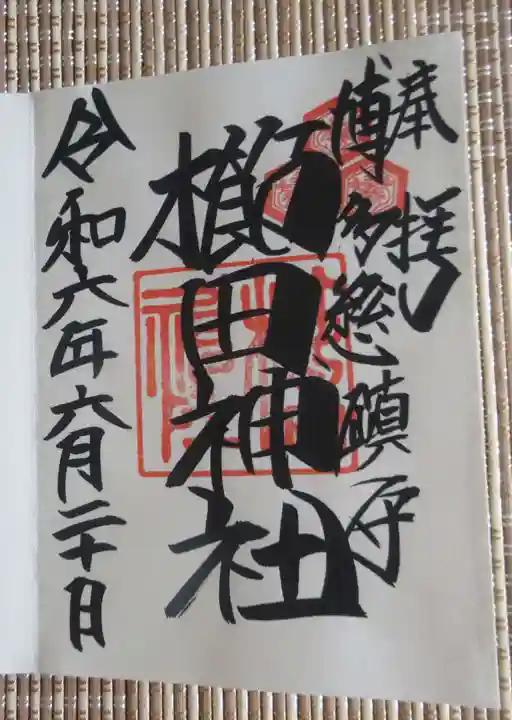 奉拝
博多総鎮守
櫛田神社
令和六年六月二十日